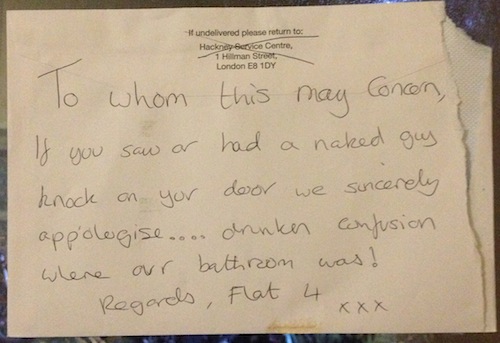 If undelivered please return to:
Hackney Service Centre,
1 Hillman Street,
London E8 1DY
To whom this may Concern,
If you saw or had a naked guy
knock on your door we sincerely
appologise.... drunken confusion
where our bathroom was!
Regards, Flat 4 xxx